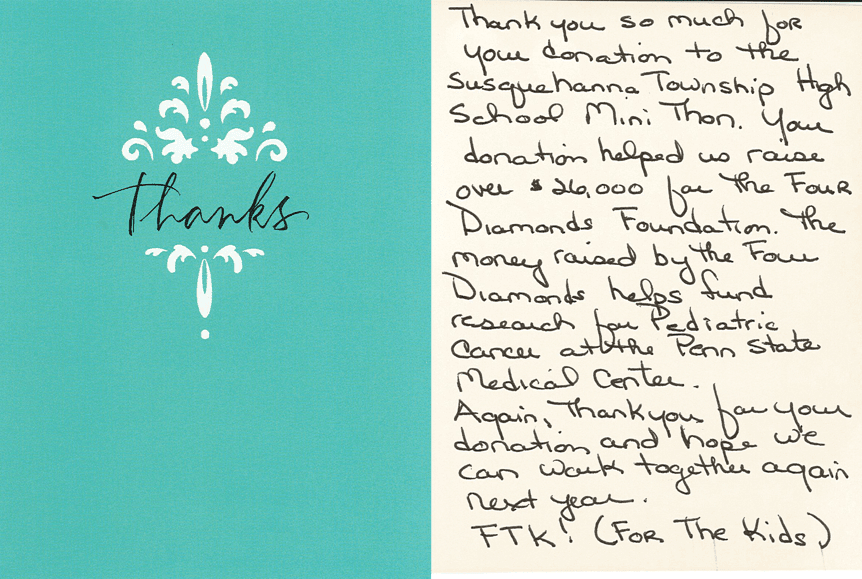 Thanks
Thank you so much for
your donation to the
Susquehanna Township High
School Mini Thon. Your
donation helped us raise
over $26,000 for the Four
Diamonds Foundation. The
money raised by the Four
Diamonds helps fund
research for Pediatric
Cancer at the Penn State
Medical Center.
Again, Thank you for your
donation and hope we
can work together again
next year.
FTK! (For The Kids)